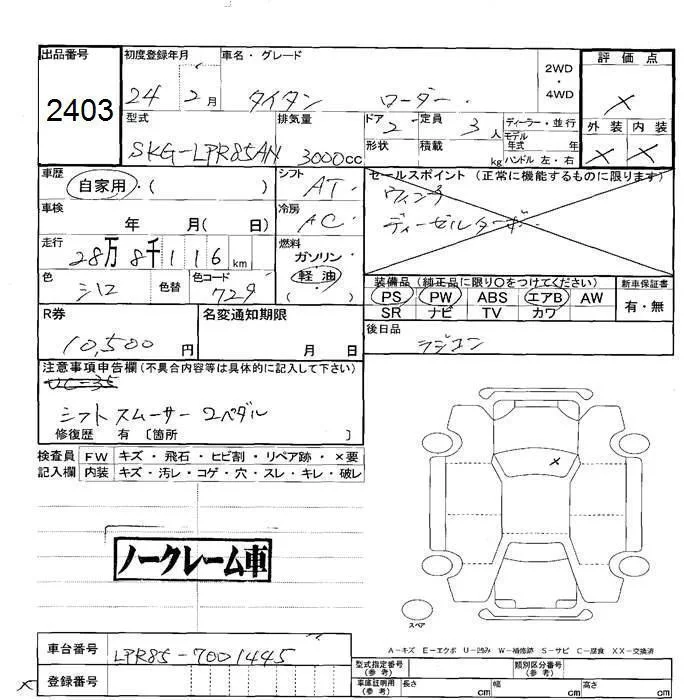 出品番号
2403
初度登録年月
24 2月
車名・グレード
タイタン ローダー
2WD
・
4WD
評価点
×
外装 内装
× ×
型式
SKG-LPR85AN
排気量
3000cc
ドア
2
形状
定員
3人
積載
kg
ディーラー・並行
モデル
年式 年
ハンドル 左・右
車歴
自家用・( )
シフト
AT
セールスポイント (正常に機能するものに限ります)
ウィンチ
ディーゼルターボー
車検
年 月( 日)
冷房
AC
走行
28万8千116km
燃料
ガソリン
軽油
( )
色
シロ
色替
色コード
729
装備品 (純正品に限り○をつけてください)
PS PW ABS エアB AW
SR ナビ TV カワ
新車保証書
有・無
R券
10,500円
名変通知期限
月 日
後日品
ラジコン
注意事項申告欄(不具合内容等は具体的に記入して下さい)
シフト スムーサー 2ペダル
修復歴 有 〔箇所 〕
検査員
記入欄
FW キズ・飛石・ヒビ割・リペア跡・×要
内装 キズ・汚レ・コゲ・穴・スレ・キレ・破レ
×
ノークレーム車
スペア
A-キズ E-エクボ U-凹み W-補修跡 S-サビ C-腐食 XX-交換済
車台番号
LPR85-7001445
×
登録番号
型式指定番号
(参考)
類別区分番号
(参考)
車庫証明用
(参考)
長さ cm 幅 cm 高さ cm